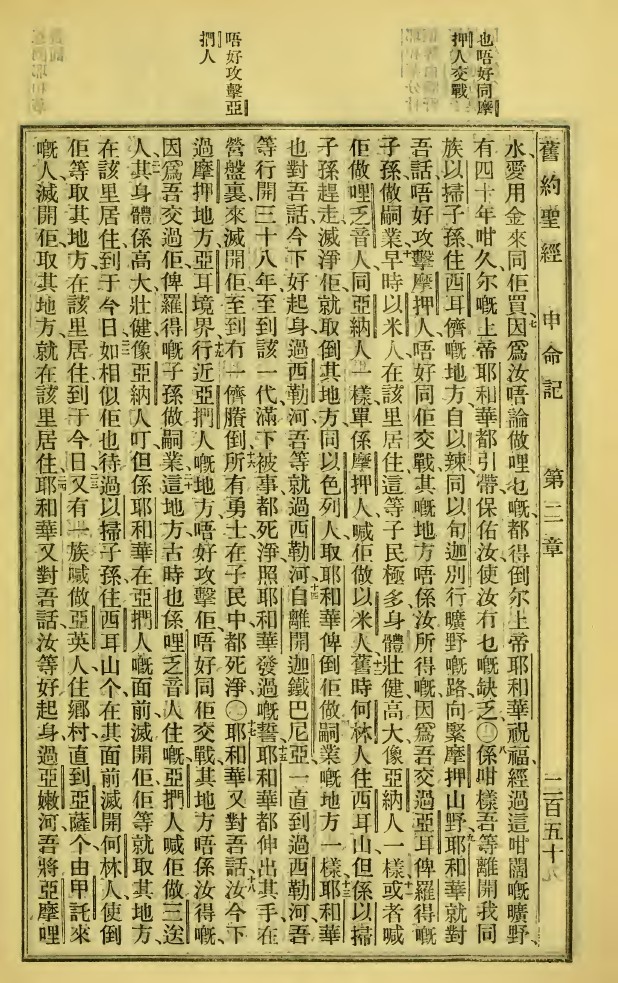 也唔好同摩
押人交戰
唔好攻擊亞
捫人
舊約聖經 申命記 第二章 二百五十九
水愛用金來同佢買七因爲汝唔論做哩乜嘅都得倒尔上帝耶和華祝福經過這咁闊嘅曠野
有四十年咁久尔嘅上帝耶和華都引帶保佑汝使汝有乜嘅缺乏〇八係咁樣吾等離開我同
族以掃子孫住西耳儕嘅地方自以辣同以旬迦別行曠野嘅路向緊摩押山野九耶和華就對
吾話唔好攻擊摩押人唔好同佢交戰其嘅地方唔係汝所得嘅因爲吾交過亞耳俾羅得嘅
子孫做嗣業十早時以米人在該里居住這等子民極多身體壯健高大像亞納人一樣十一或者喊
佢做哩乏音人同亞納人一樣單係摩押人喊佢做以米人十二舊時何林人住西耳山但係以掃
子孫趕走滅淨佢就取倒其地方同以色列人取耶和華俾倒佢做嗣業嘅地方一樣十三耶和華
也對吾話今下好起身過西勒河吾等就過西勒河十四自離開迦鐵巴尼亞一直到過西勒河吾
等行開三十八年至到該一代滿下被事都死淨照耶和華發過嘅誓十五耶和華都伸出其手在
營盤裏來滅開佢至到有一儕賸倒十六所有勇士在子民中都死淨〇十七耶和華又對吾話十八汝今下
過摩押地方亞耳境界十九行近亞捫人嘅地方唔好攻擊佢唔好同佢交戰其地方唔係汝得嘅
因爲吾交過佢俾羅得嘅子孫做嗣業二十這地方古時也係哩乏音人住嘅亞捫人喊佢做三送
人二一其身體係高大壯健像亞納人叮但係耶和華在亞捫人嘅面前滅開佢佢等就取其地方
在該里居住到于今日二二如相似佢也待過以掃子孫住西耳山个在其面前滅開何林人使倒
佢等取其地方在該里居住到于今日二三又有一族喊做亞英人住鄉村直到亞薩个由甲託來
嘅人滅開佢取其地方就在該里居住二四耶和華又對吾話汝等好起身過亞嫩河吾將亞摩哩